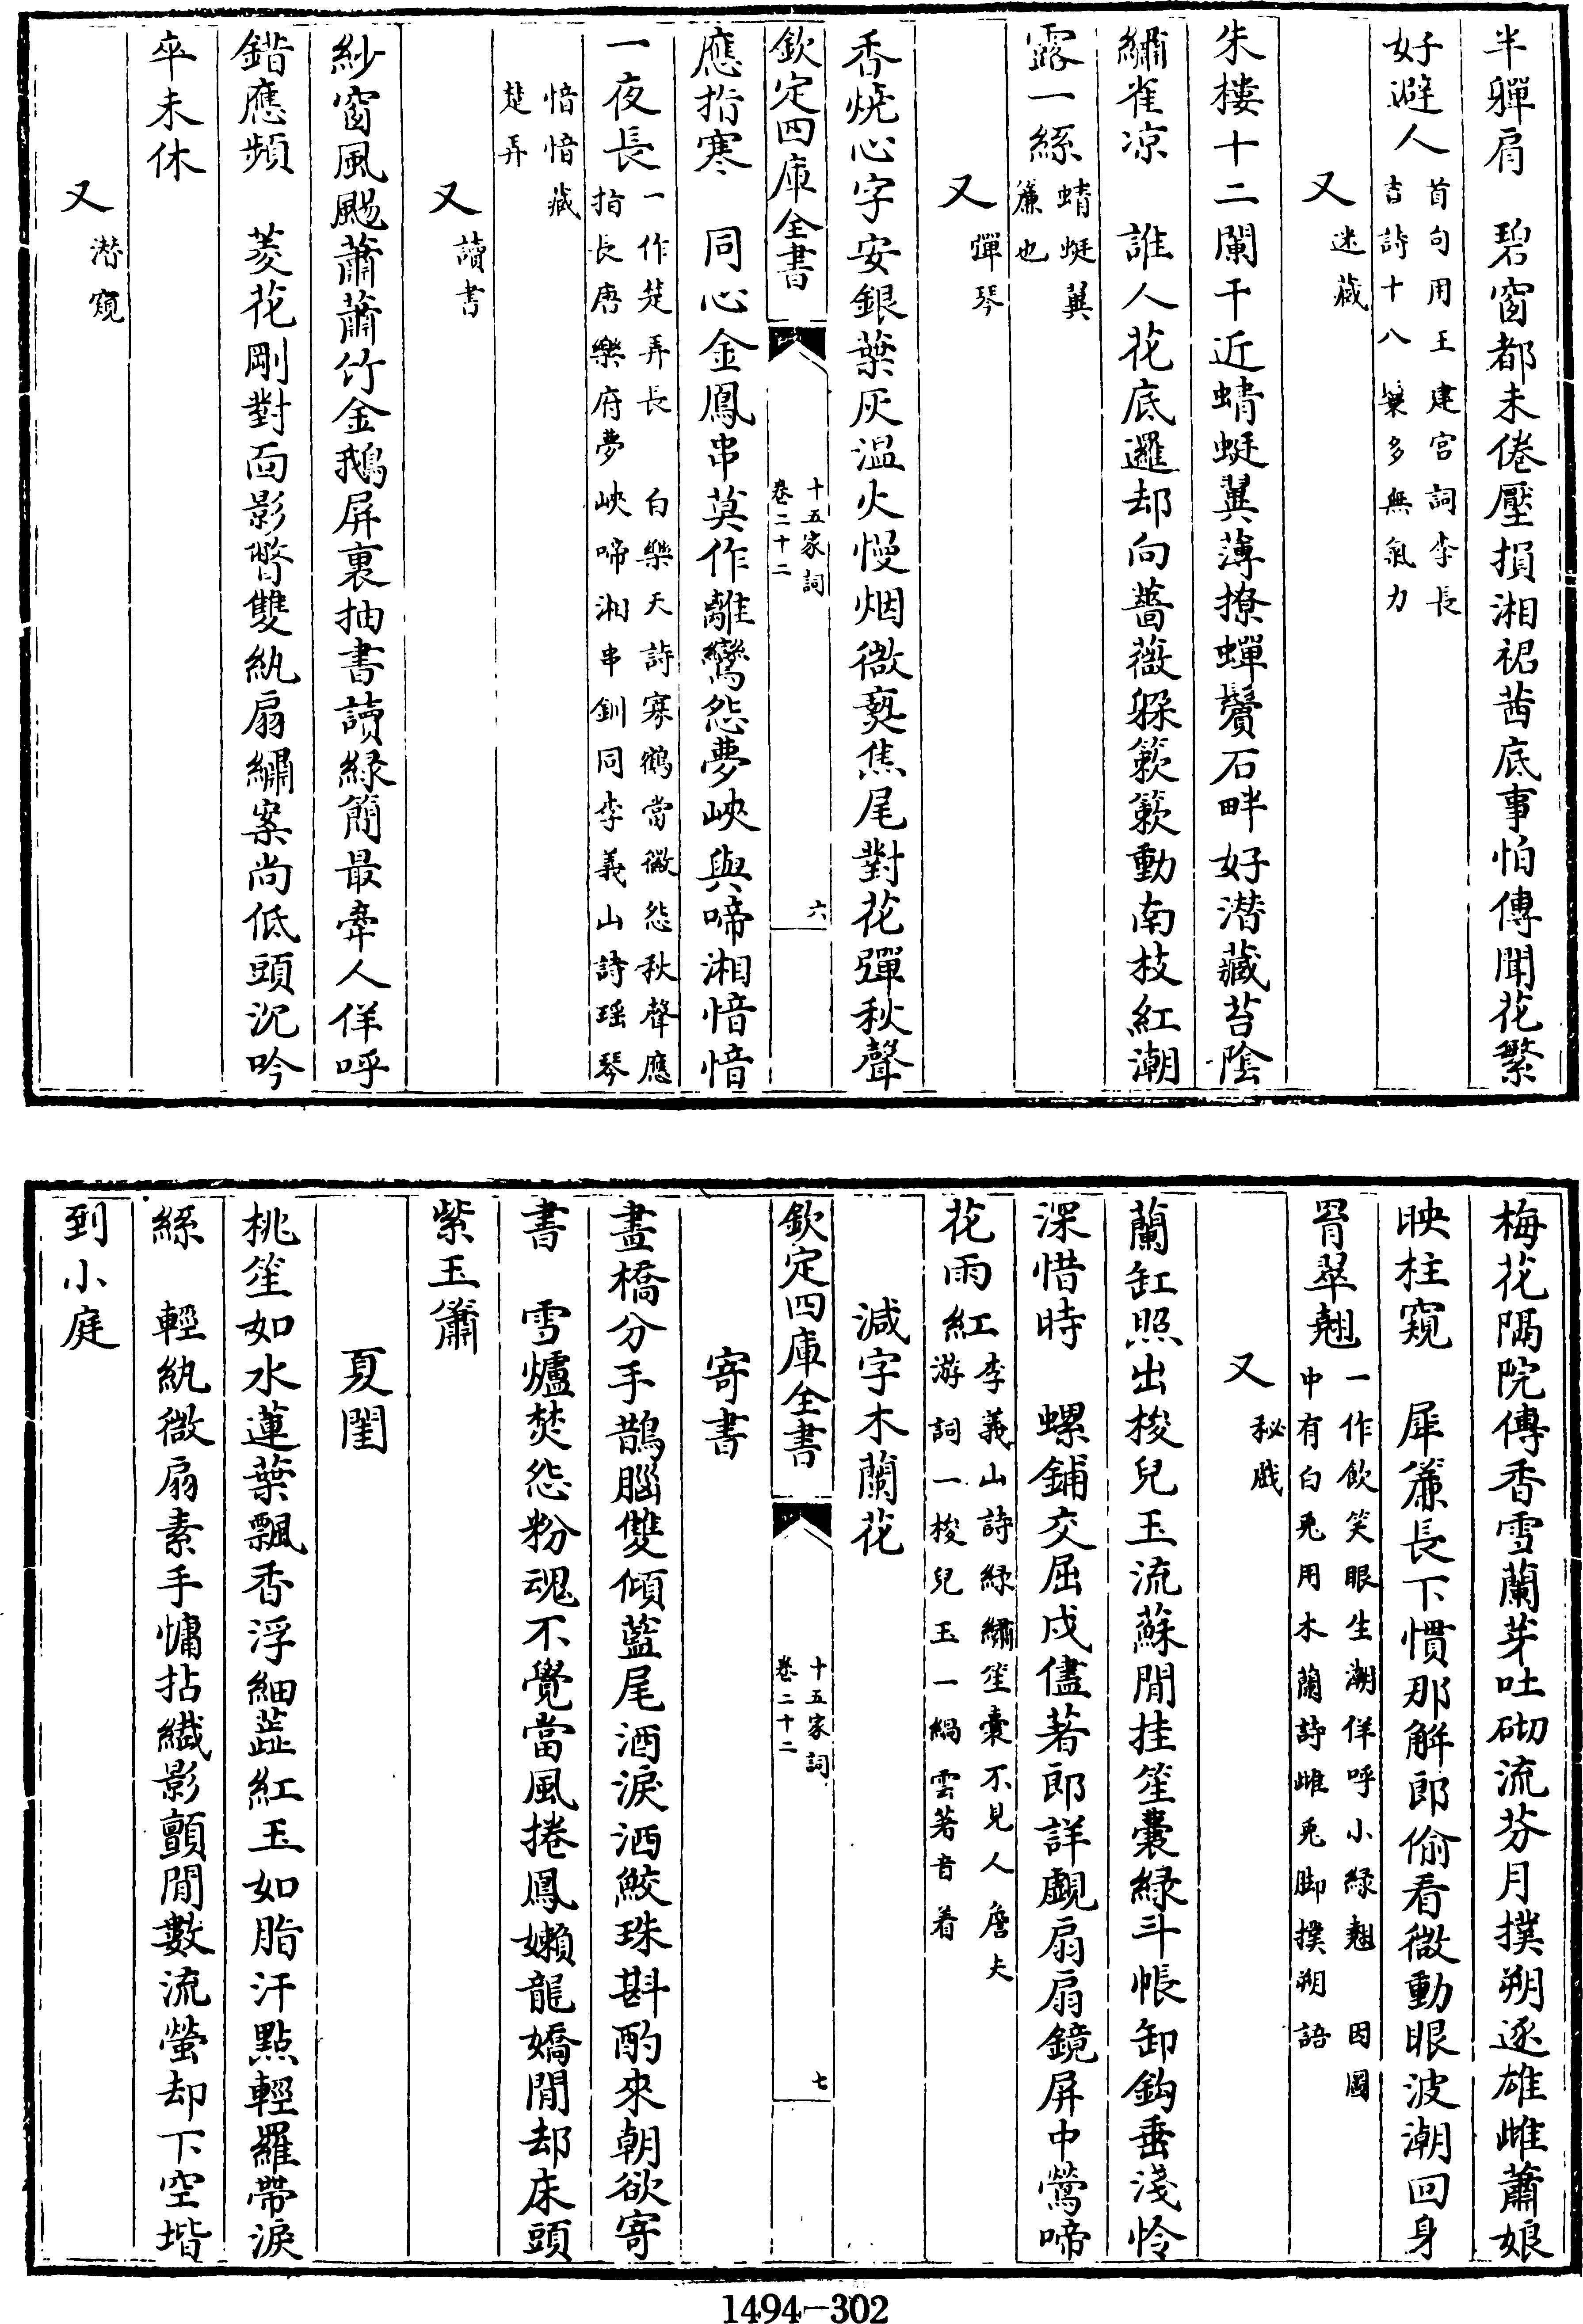 半軃肩　碧窗都未倦壓損湘裙茜底事怕傳聞花繁
好避人首句用王建宮詞李長
吉詩十八鬟多無氣力
又迷藏
朱樓十二闌干近蜻蜓翼薄撩蟬鬢石畔好潛藏苔陰
繡雀凉　誰人花底邏却向薔薇躲簌簌動南枝紅潮
露一絲蜻蜓翼
簾也
又彈琴
香燒心字安銀葉灰溫火慢烟微爇焦尾對花彈秋聲
欽定四庫全書
十五家詞
卷二十二
六
應指寒　同心金鳳串莫作離鸞怨夢峽與啼湘愔愔
一夜長一作楚弄長　白樂天詩寡鶴當徽怨秋聲應
指長唐樂府夢峽啼湘串釧同李義山詩瑶琴
愔愔藏
楚弄
又讀書
紗窗風颺蕭蕭竹金鵝屏裏抽書讀緑簡最牽人佯呼
錯應頻　菱花剛對面影瞥雙紈扇繡案尚低頭沉吟
卒未休
又潜窺
梅花隔院傳香雪蘭芽吐砌流芬月撲朔逐雄雌蕭娘
映柱窺　犀簾長下慣那解郎偷看微動眼波潮回身
罥翠翹一作飲笑眼生潮佯呼小緑翹　因園
中有白兎用木蘭詩雌兎脚撲朔語
又秘戲
蘭缸照出梭兒玉流蘇閒挂笙囊緑斗帳卸鈎垂淺怜
深惜時　螺鋪交屈戍儘著郎詳覷扇扇鏡屏中鶯啼
花雨紅李義山詩緑繡笙囊不見人詹夫
游詞一梭兒玉一緺雲著音着
減字木蘭花
欽定四庫全書
十五家詞
卷二十二
七
寄書
畫橋分手鵲腦雙傾藍尾酒淚洒鮫珠斟酌來朝欲寄
書　雪爐焚怨粉魂不覺當風捲鳳嬾龍嬌閒却床頭
紫玉簫
夏閨
桃笙如水蓮葉飄香浮細蕋紅玉如脂汗點輕羅帶淚
絲　輕紈微扇素手慵拈纎影顫閒數流螢却下空堦
到小庭
1494—302